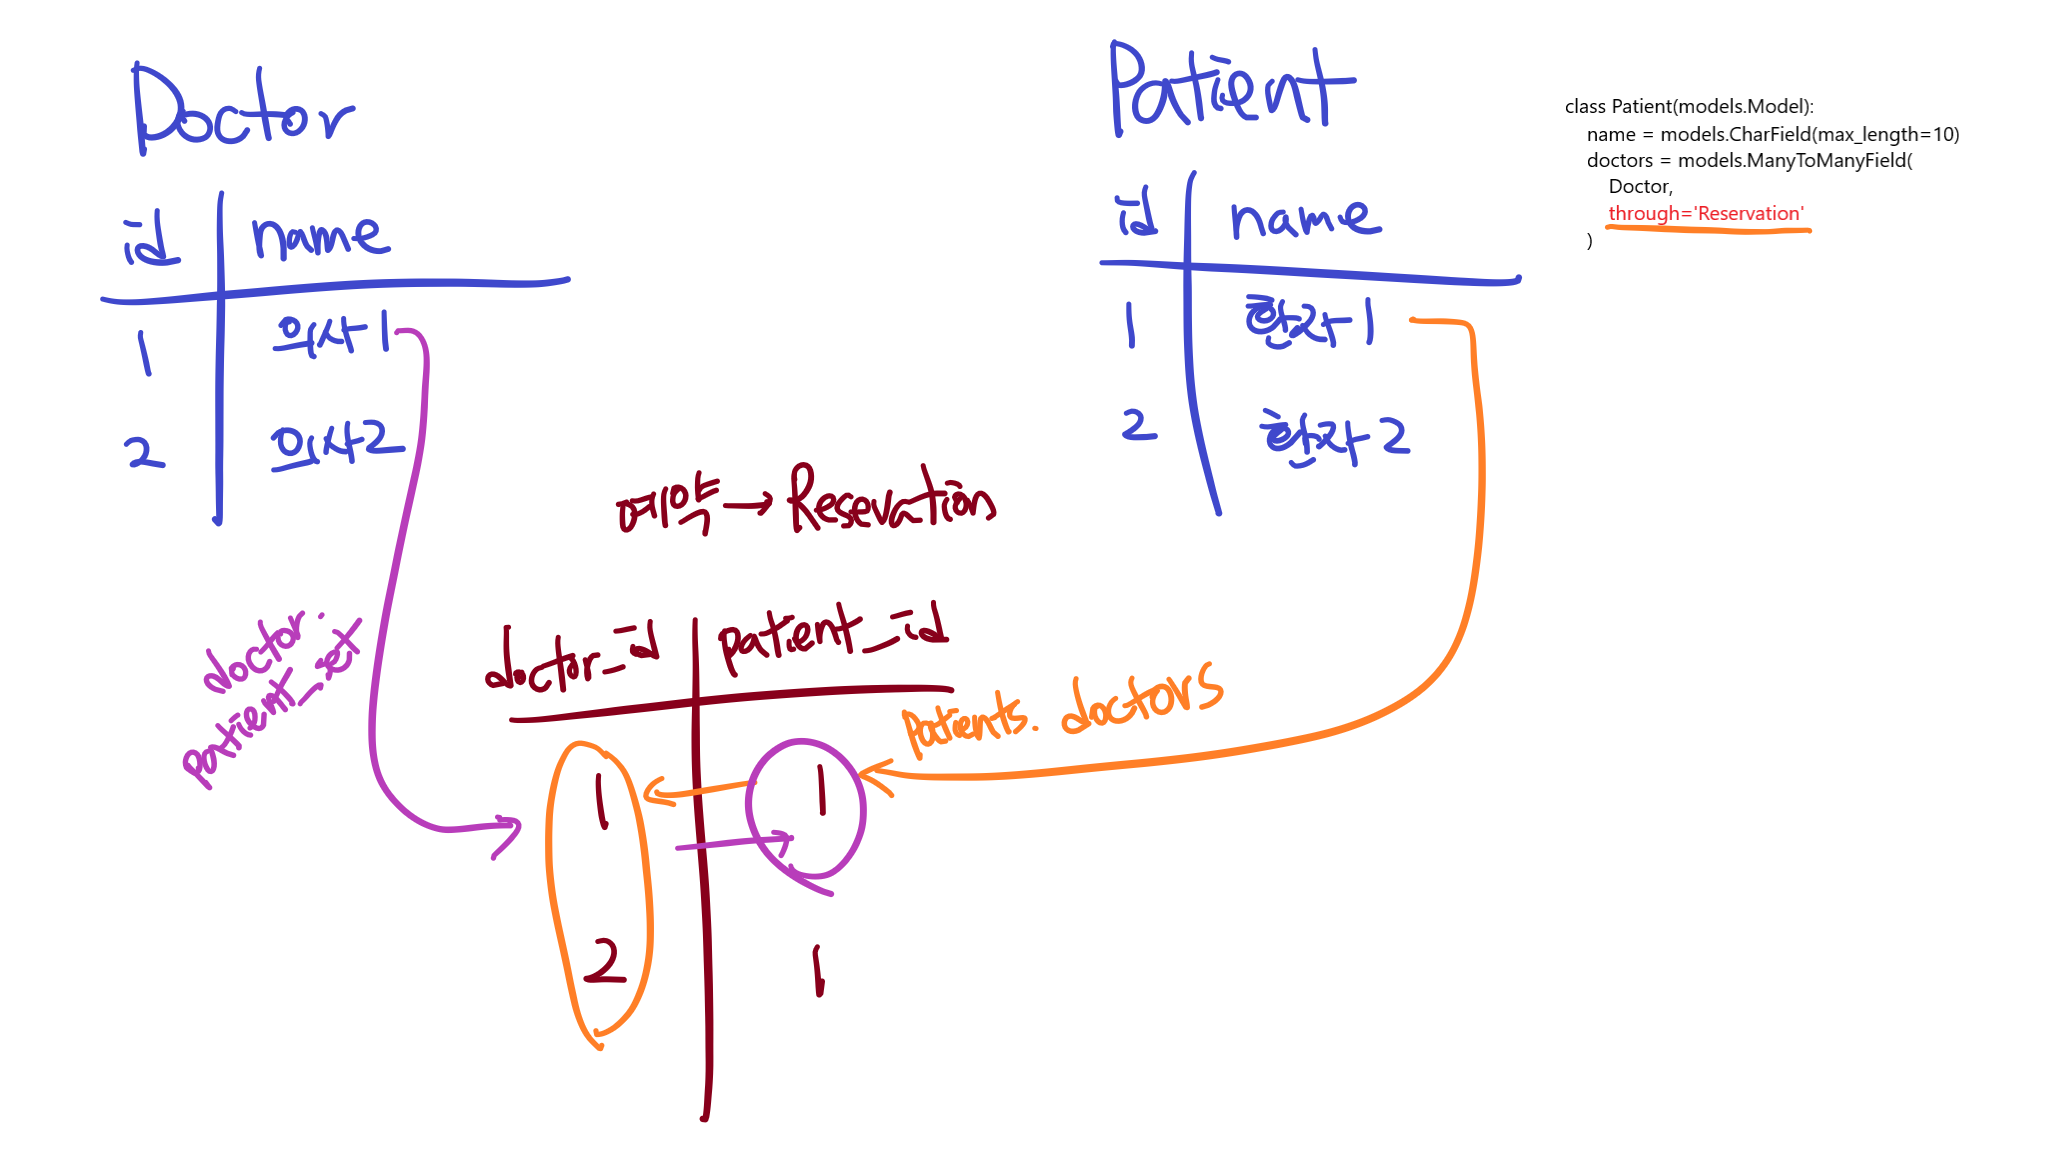 Doctor
id name
1 의사1
2 의사2
Patient
id name
1 환자1
2 환자2
class Patient(models.Model):
name = models.CharField(max_length=10)
doctors = models.ManyToManyField(
Doctor,
through='Reservation'
)
예약 → Resevation
doctor_id patient_id
1 1
2 1
doctor.
patient_set
patients. doctors